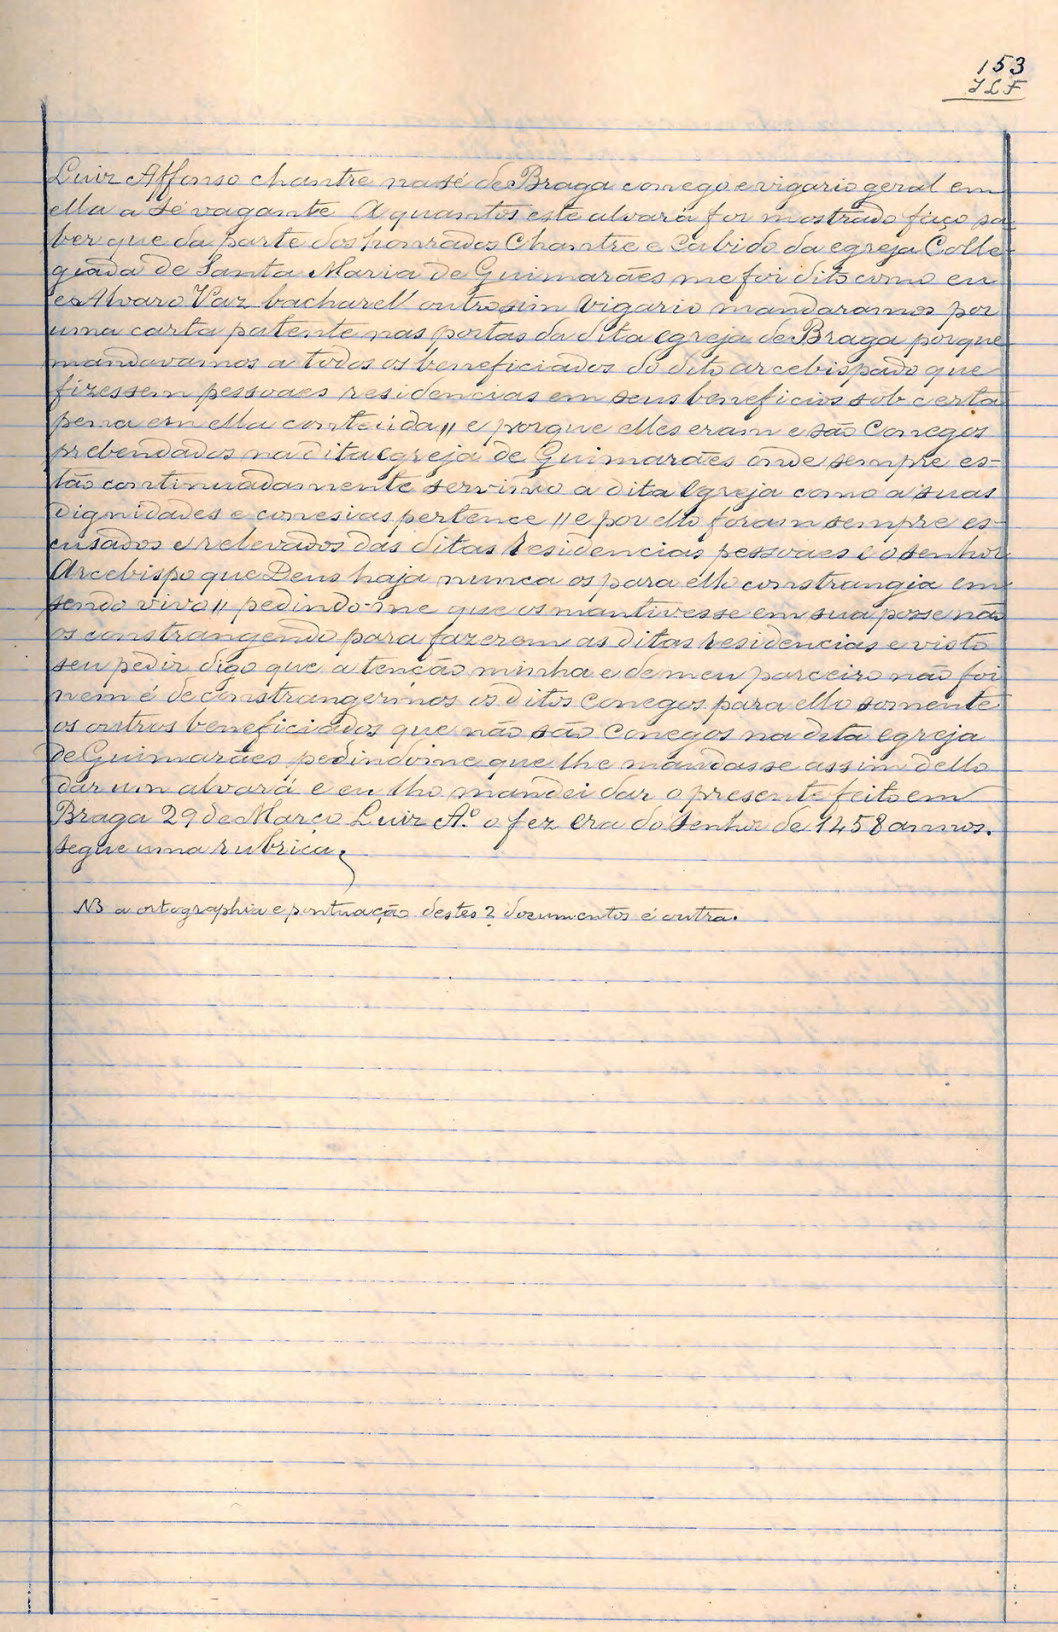 153
JLF
Luiz Affonso chantre na sé de Braga conego e vigario geral em
ella a sé vagante A quantos este alvará for mostrado faço sa
ber que da parte dos honrados Chantre e Cabido da egreja Colle-
giada de Santa Maria de Guimarães me foi dito como eu
e Alvaro Vaz bacharel outrosim vigario mandaramos por
uma carta patente nas portas da dita egreja de Braga porque
mandavamos a todos os beneficiados do dito arcebispado que
fizessem pessoaes residencias em seus beneficios sob certa
pena em ella conteúda,, e porque elles eram e são Conegos
prebendados na dita egreja de Guimarães onde sempre es-
tão continuadamente servindo a dita egreja como a suas
dignidades e conesias pertence ,, e por ello foram sempre es-
cusados e relevados das ditas residencias pessoaes e o senhor
Arcebispo que Deus haja nunca os para ello constrangia em
sendo vivo,, pedindo-me que os mantivesse em sua posse não
os constrangendo para fazerem as ditas residencias e visto
seu pedir digo que a tenção minha e de meu parceiro não foi
nem é de constrangermos os ditos conegos para ello somente
os outros beneficiados que não são Conegos na dita egreja
de Guimarães pedindo-me que lhe mandasse assim dello
dar um alvará e eu lho mandei dar o presente feito em
Braga 29 de Março Luiz A.º o fez era do Senhor de 1458 annos.
segue uma rubrica.
NB a ortographia e pontuação destes 2 documentos é outra.